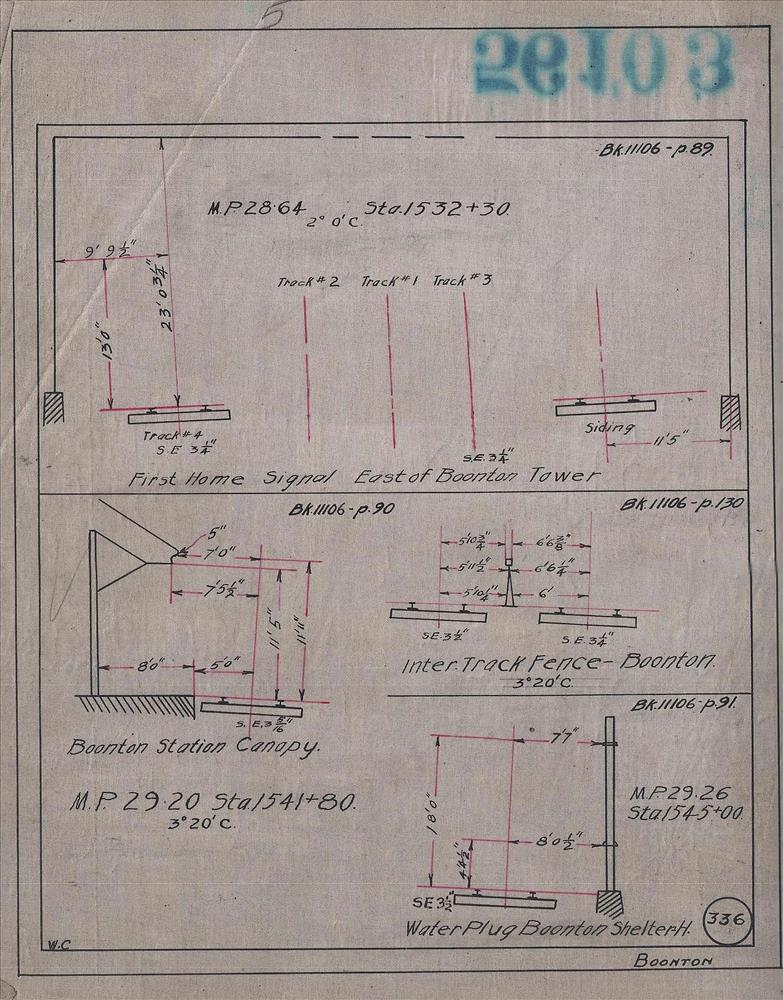 5
56103
Bk.11106-p.89.
M.P. 28.64 Sta. 1532+30.
2° 0' C.
9' 9 1/2"
23' 0 3/4"
13'0"
Track #2 Track #1 Track #3
Track #4
S.E 3 1/4"
S.E. 3 1/4"
Siding
11'5"
First Home Signal East of Boonton Tower
Bk.11106-p.90
5"
7'0"
7'5 1/2"
11'5"
11'11"
8'0"
5'0"
S. E. 3 5/16"
Boonton Station Canopy.
M.P. 29.20 Sta. 1541+80.
3° 20' C.
Bk.11106-p.130
5'10 3/4" 6'6 3/8"
5'11 1/2" 6'6 1/4"
5'10 1/4" 6'
S.E. 3 1/2" S.E. 3 1/4"
Inter. Track Fence- Boonton.
3° 20' C.
Bk.11106-p.91.
7'7"
18'0"
8'0 1/2"
4'4 1/2"
SE 3 1/2"
M.P. 29.26
Sta 1545+00.
Water Plug Boonton Shelter H.
336
W.C
Boonton